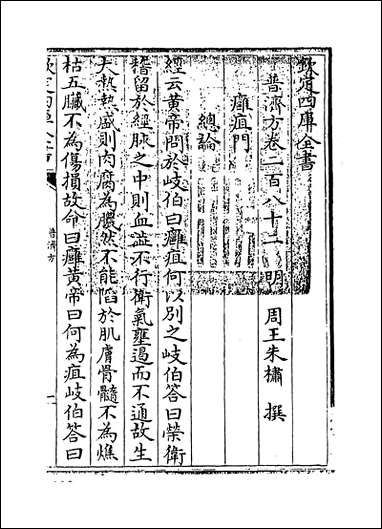 欽定四庫全書
普濟方卷二百八十二 明 周王朱橚 撰
癰疽門
總論
經云黃帝問於岐伯曰癰疽何以别之岐伯答曰榮衛
稽留於經脈之中則血澁不行衛氣壅遏而不通故生
大熱熱盛則肉腐為膿然不能陷於肌膚骨髓不為燋
枯五臟不為傷損故命曰癰黃帝曰何為疽岐伯答曰
普濟方